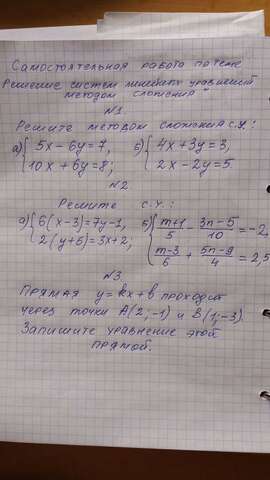 Самостоятельная работа по теме
"Решение систем линейных уравнений
методом сложения"
N1
Решите методом сложения с.у.:
а) { 5x - 6y = 7, б) { 4x + 3y = 3,
10x + 6y = 8; 2x - 2y = 5.
N2
Решите с.у.:
а) { 6(x-3) = 7y-1, б) { (m+1)/5 - (3n-5)/10 = -2,
2(y+6) = 3x+2; (m-3)/6 + (5n-9)/4 = 2,5
N3
Прямая y = kx + b проходит
через точки A(2;-1) и B(1;-3).
Запишите уравнение этой
прямой.